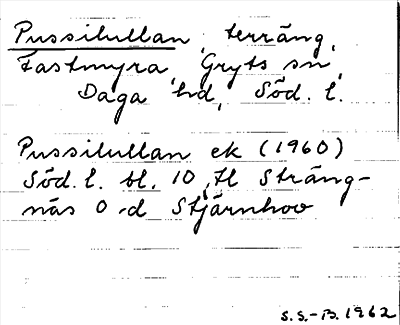 Pussilullan, terräng,
Fastmyra, Gryts sn,
Daga hd, Söd. l.
Pussilullan ek (1960)
Söd. l. bl. 10, Il Sträng-
näs O -d Stjärnhov
S.S.-B. 1962